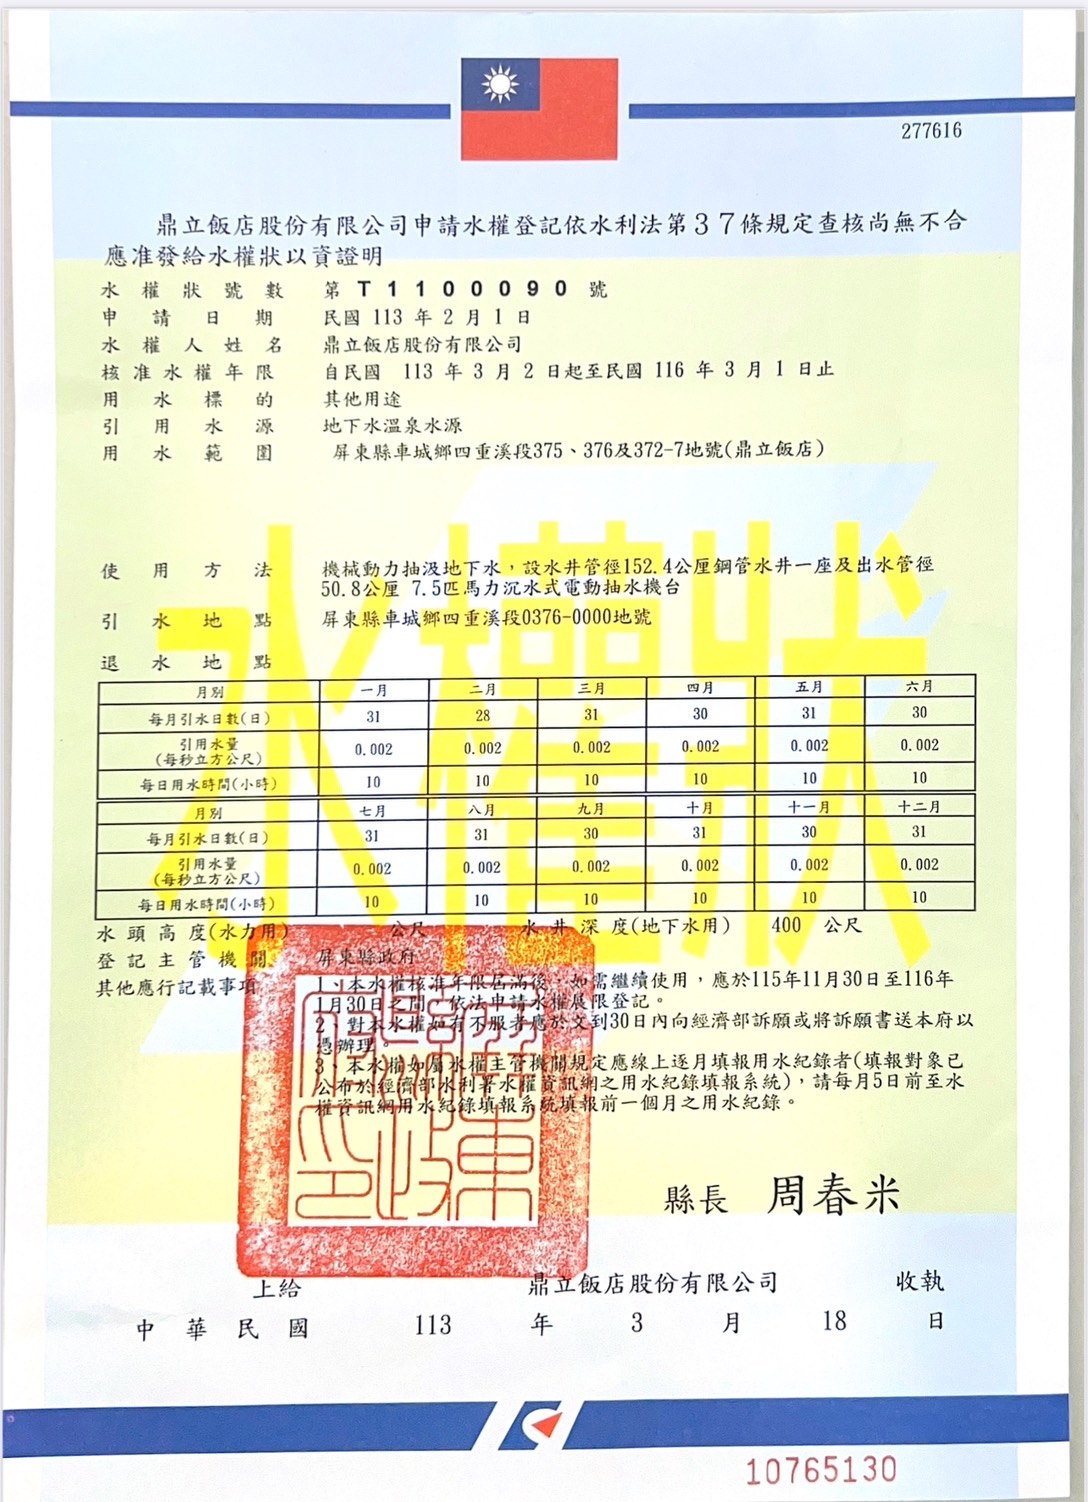 277616
鼎立飯店股份有限公司申請水權登記依水利法第３７條規定查核尚無不合
應准發給水權狀以資證明
水權狀號數 第 T1100090 號
申請日期 民國 113 年 2 月 1 日
水權人姓名 鼎立飯店股份有限公司
核准水權年限 自民國 113 年 3 月 2 日起至民國 116 年 3 月 1 日止
用水標的 其他用途
引用水源 地下水溫泉水源
用水範圍 屏東縣車城鄉四重溪段375、376及372-7地號(鼎立飯店)
水權狀
使用方法 機械動力抽汲地下水，設水井管徑152.4公厘鋼管水井一座及出水管徑
50.8公厘 7.5匹馬力沉水式電動抽水機台
引水地點 屏東縣車城鄉四重溪段0376-0000地號
退水地點
月別 一月 二月 三月 四月 五月 六月
每月引水日數(日) 31 28 31 30 31 30
引用水量
(每秒立方公尺) 0.002 0.002 0.002 0.002 0.002 0.002
每日用水時間(小時) 10 10 10 10 10 10
月別 七月 八月 九月 十月 十一月 十二月
每月引水日數(日) 31 31 30 31 30 31
引用水量
(每秒立方公尺) 0.002 0.002 0.002 0.002 0.002 0.002
每日用水時間(小時) 10 10 10 10 10 10
水頭高度(水力用) 公尺 水井深度(地下水用) 400 公尺
登記主管機關 屏東縣政府
其他應行記載事項 1、本水權核准年限屆滿後，如需繼續使用，應於115年11月30日至116年
1月30日之間，依法申請水權展限登記。
2、對本水權如有不服者應於文到30日內向經濟部訴願或將訴願書送本府以
憑辦理。
3、本水權如屬水權主管機關規定應線上逐月填報用水紀錄者(填報對象已
公布於經濟部水利署水權資訊網之用水紀錄填報系統)，請每月5日前至水
權資訊網用水紀錄填報系統填報前一個月之用水紀錄。
屏東縣政府印
縣長 周春米
上給 鼎立飯店股份有限公司 收執
中華民國 113 年 3 月 18 日
10765130